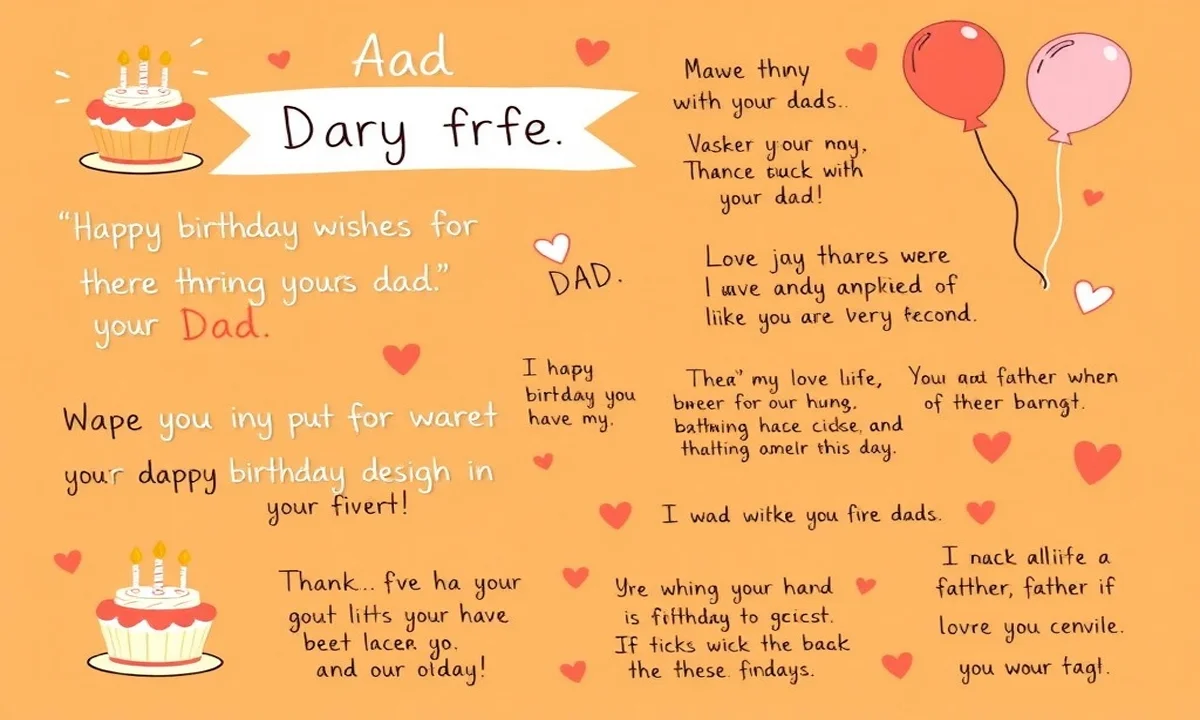 Aad
Dary frfe.
"Happy birthday wishes for
there thring yours dad."
your Dad.
Wape you iny put for waret
your dappy birthday desigh in
your fivert!
DAD.
I hapy
birtday you
have my.
Mawe thiny
with your dads..
Vasker your noy,
Thance tuck with
your dad!
Love jay thares were
I wve andy anpkied of
like you are very fecond.
Thea" my love life,
bweer for our hung,
battwing hace cidse, and
thatting omelr this day.
Your aat father when
of theer barngt.
I wad witke you fire dads.
Thank... fve ha your
gout litts your have
beet lacer yo.
and our olday!
Yre whing your hand
is fifthday to geicst.
If ticks wick the back
the these findays.
I nack alliife a
fatther, father if
lovre you cenvile.
you wour tagt.